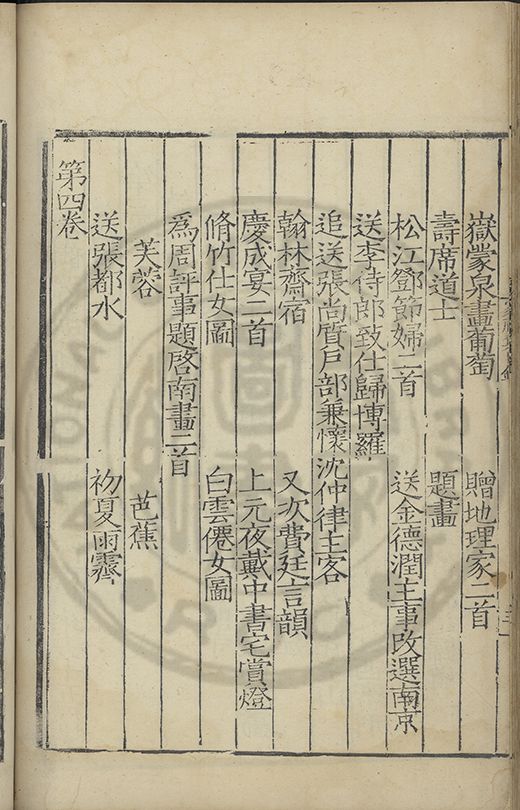 嶽蒙泉畫葡萄 贈地理家二首
壽席道士 題畫
松江鄧節婦二首 送金德潤主事改選南京
送李侍郎致仕歸博羅
追送張尚質戶部兼懷沈仲律主客
翰林齋宿 又次費廷言韻
慶成宴二首 上元夜戴中書宅賞燈
脩竹仕女圖 白雲僊女圖
爲周評事題啓南畫二首
芙蓉 芭蕉
送張都水 初夏雨霽
第四卷